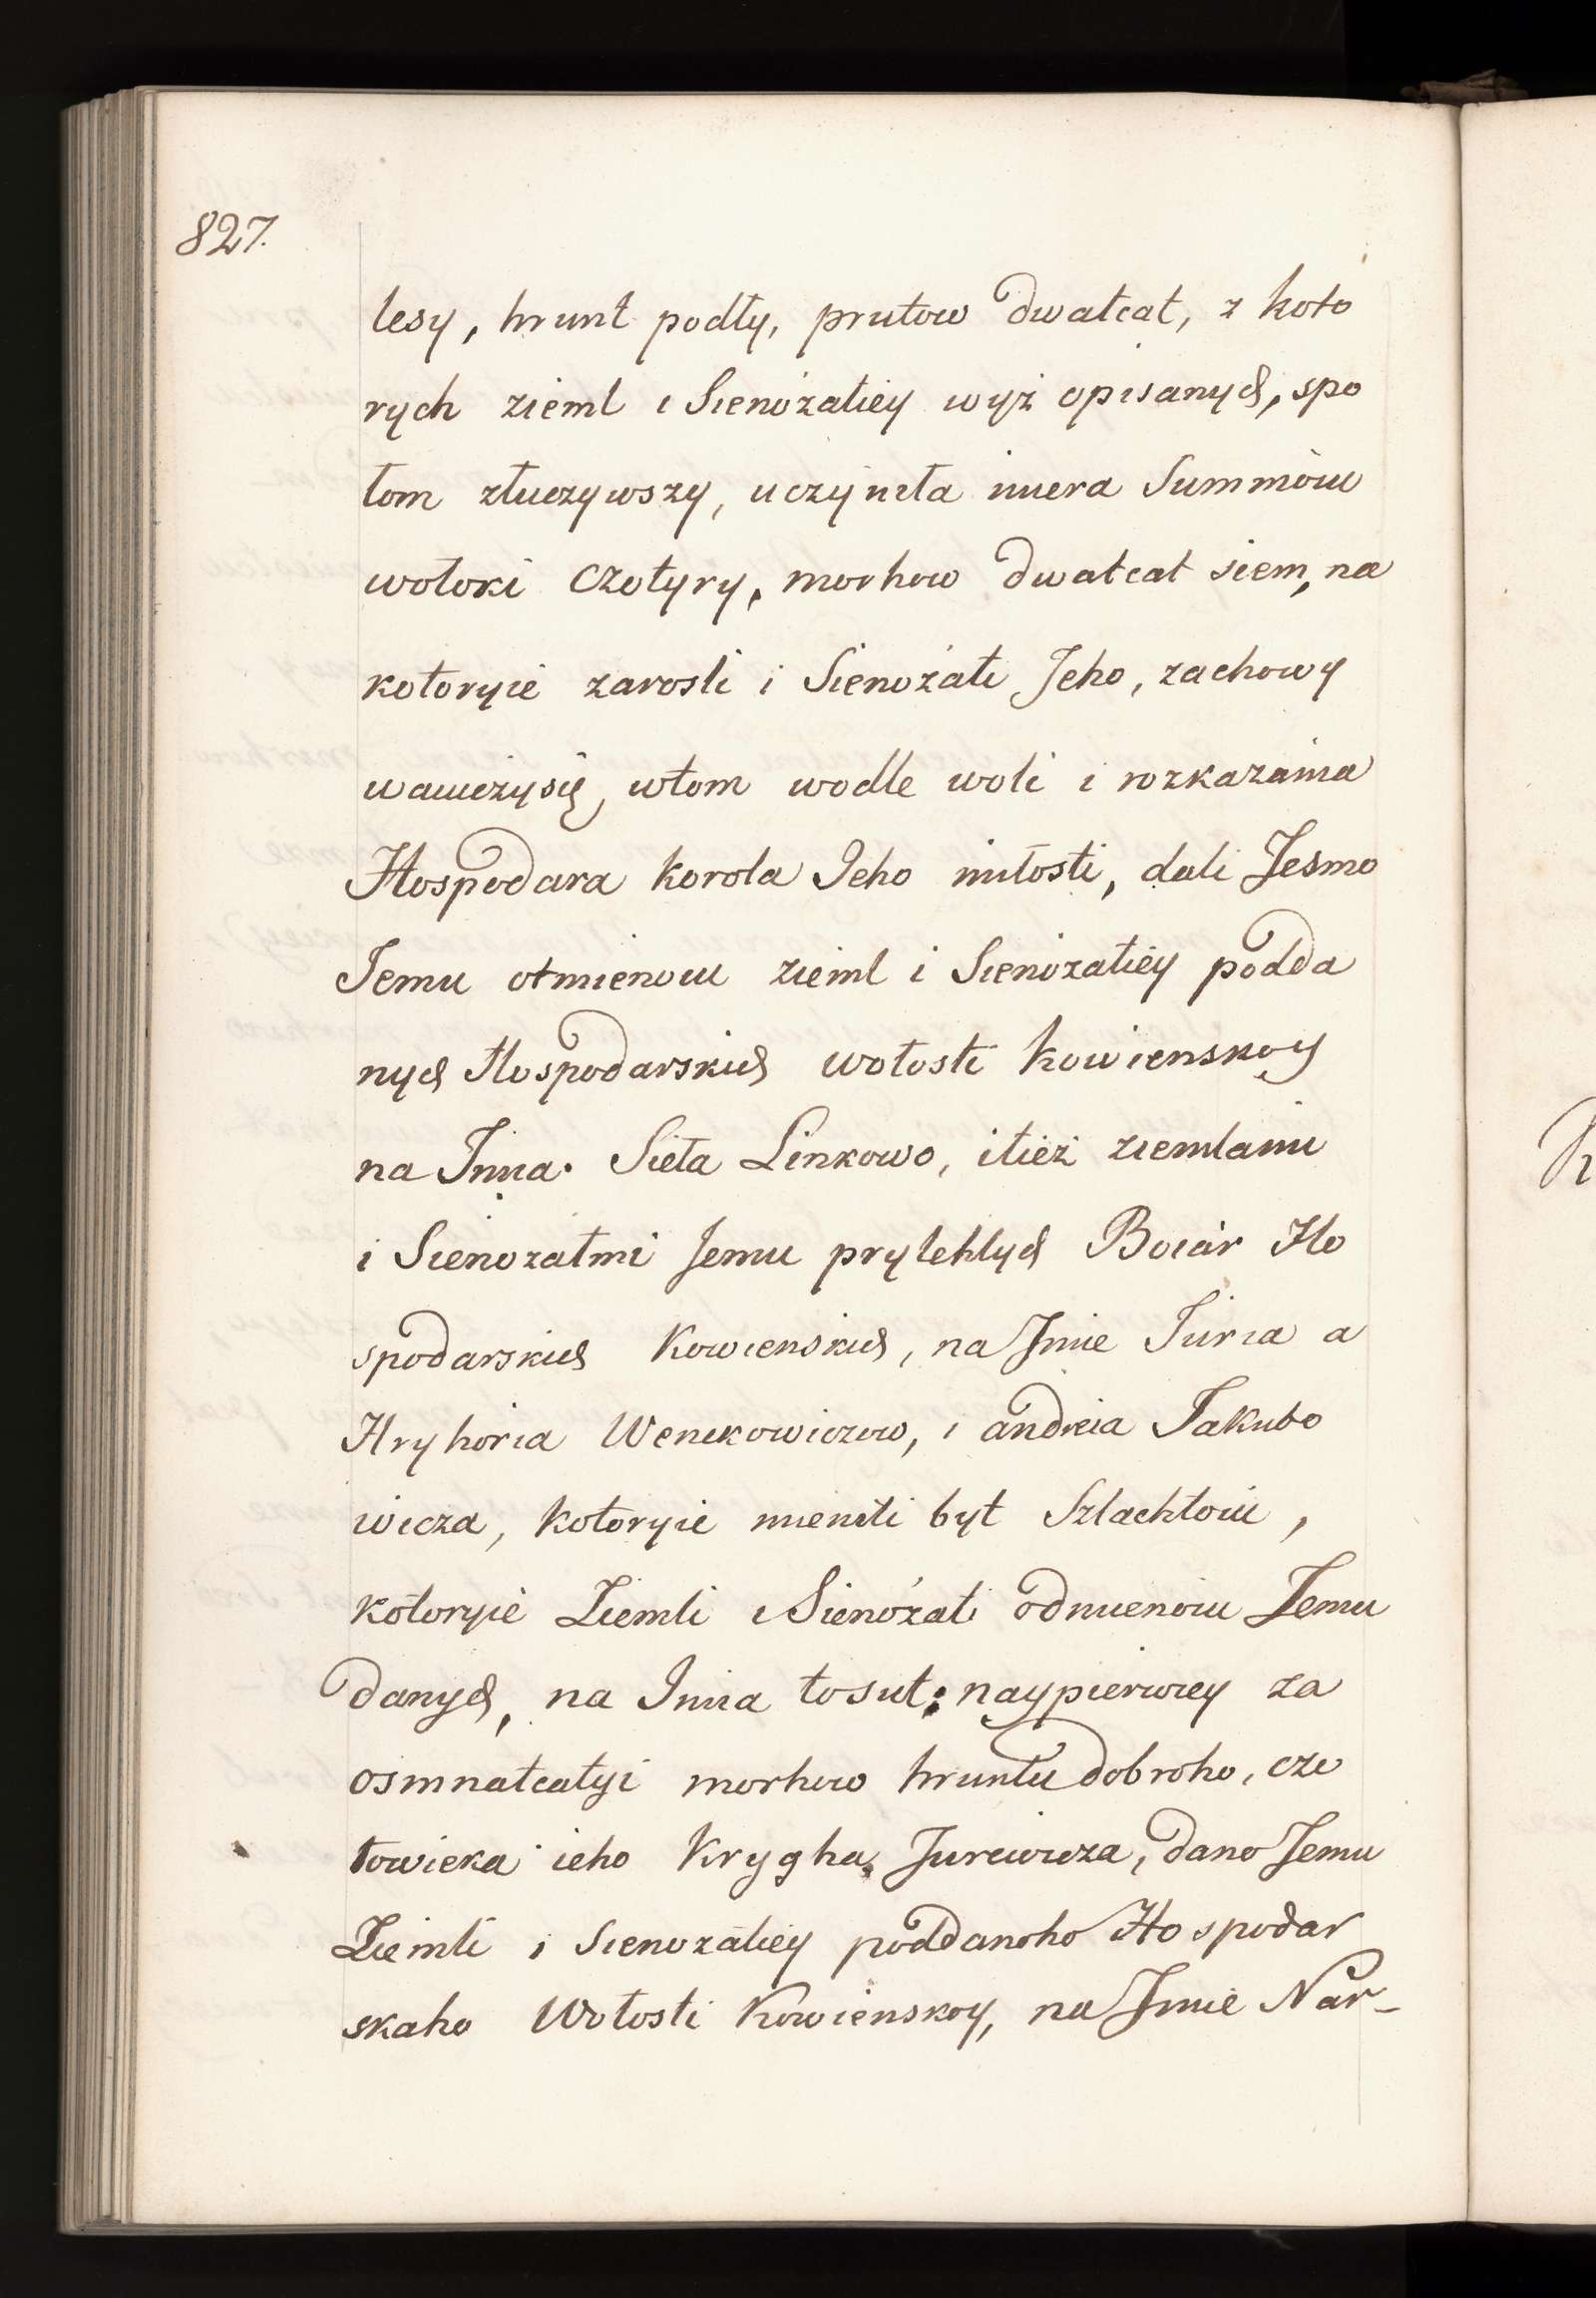 827.
lesy, hrunt podły, prutow dwatcat, z koto
rych zieml i Sienożatiey wyż opisanych, spo
łom złuczywszy, uczyniła miera Summoiu
wołoki czotyry, morhow dwatcat siem, na
kotoryie zarosli i Sienożati Jeho, zachowy
waiuczysię, wtom wodle woli i rozkazania
Hospodara korola Jeho miłosti, dali Jesmo
Jemu otmienoiu zieml i Sienożatiey podda
nych Hospodarskich wołosti kowienskoy
na Imia. Sieła Linkowo, itież ziemlami
i Sienozatmi Jemu prylehlych Boiar Ho
spodarskich Kowienskich, na Jmie Juria a
Hryhoria Wenckowiczow, i andreia Jakubo
wicza, kotoryie mienili byt Szlachtoiu,
kotoryie Ziemli i Sienożati odmienoiu Jemu
danych, na Imia tosut: naypierwiey za
osmnatcatyi morhow hruntu dobroho, czo
łowieka ieho Krygha Jurewicza, dano Jemu
Ziemli i Sienozatiey poddanoho Hospodar
skaho Wołosti Kowienskoy, na Jmie Nar-